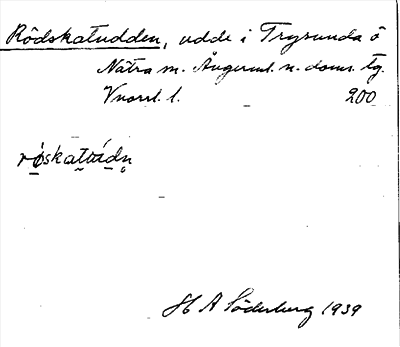 Rödskatudden, udde i Trysunda ö
Nätra sn. Ångerml. n. doms. tg.
Vnorrl. l. 200
röskatudn̥
H A Söderberg 1939